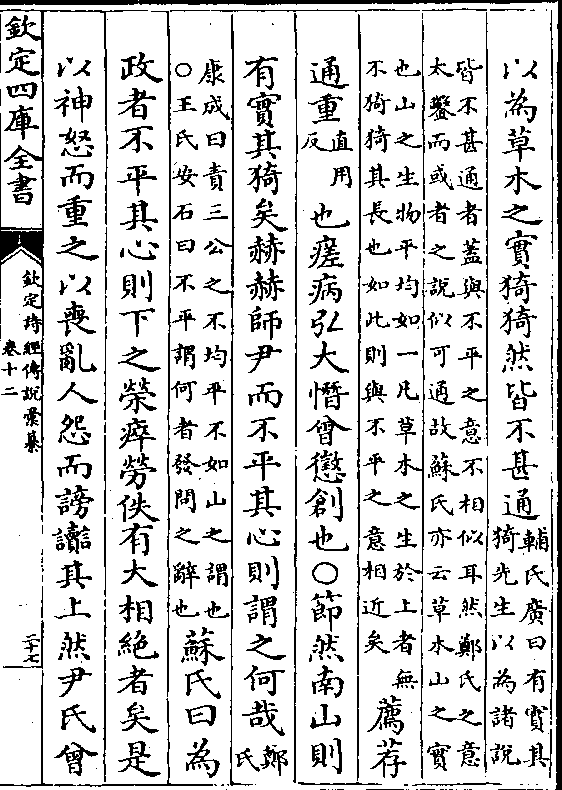 以為草木之實猗猗然皆不甚通輔氏廣曰有實其
猗先生以為諸說
皆不甚通者蓋與不平之意不相似耳然鄭氏之意
太鑿而或者之說似可通故蘇氏亦云草木山之實
也山之生物平均如一凡草木之生於上者無
不猗猗其長也如此則與不平之意相近矣薦荐
通重直用反也瘥病弘大憯曾懲創也○節然南山則
有實其猗矣赫赫師尹而不平其心則謂之何哉鄭氏
康成曰責三公之不均平不如山之謂也
○王氏安石曰不平謂何者發問之辭也蘇氏曰為
政者不平其心則下之榮瘁勞佚有大相絕者矣是
以神怒而重之以喪亂人怨而謗讟其上然尹氏曾
欽定四庫全書
欽定詩經傳說彙纂
卷十二
二十七